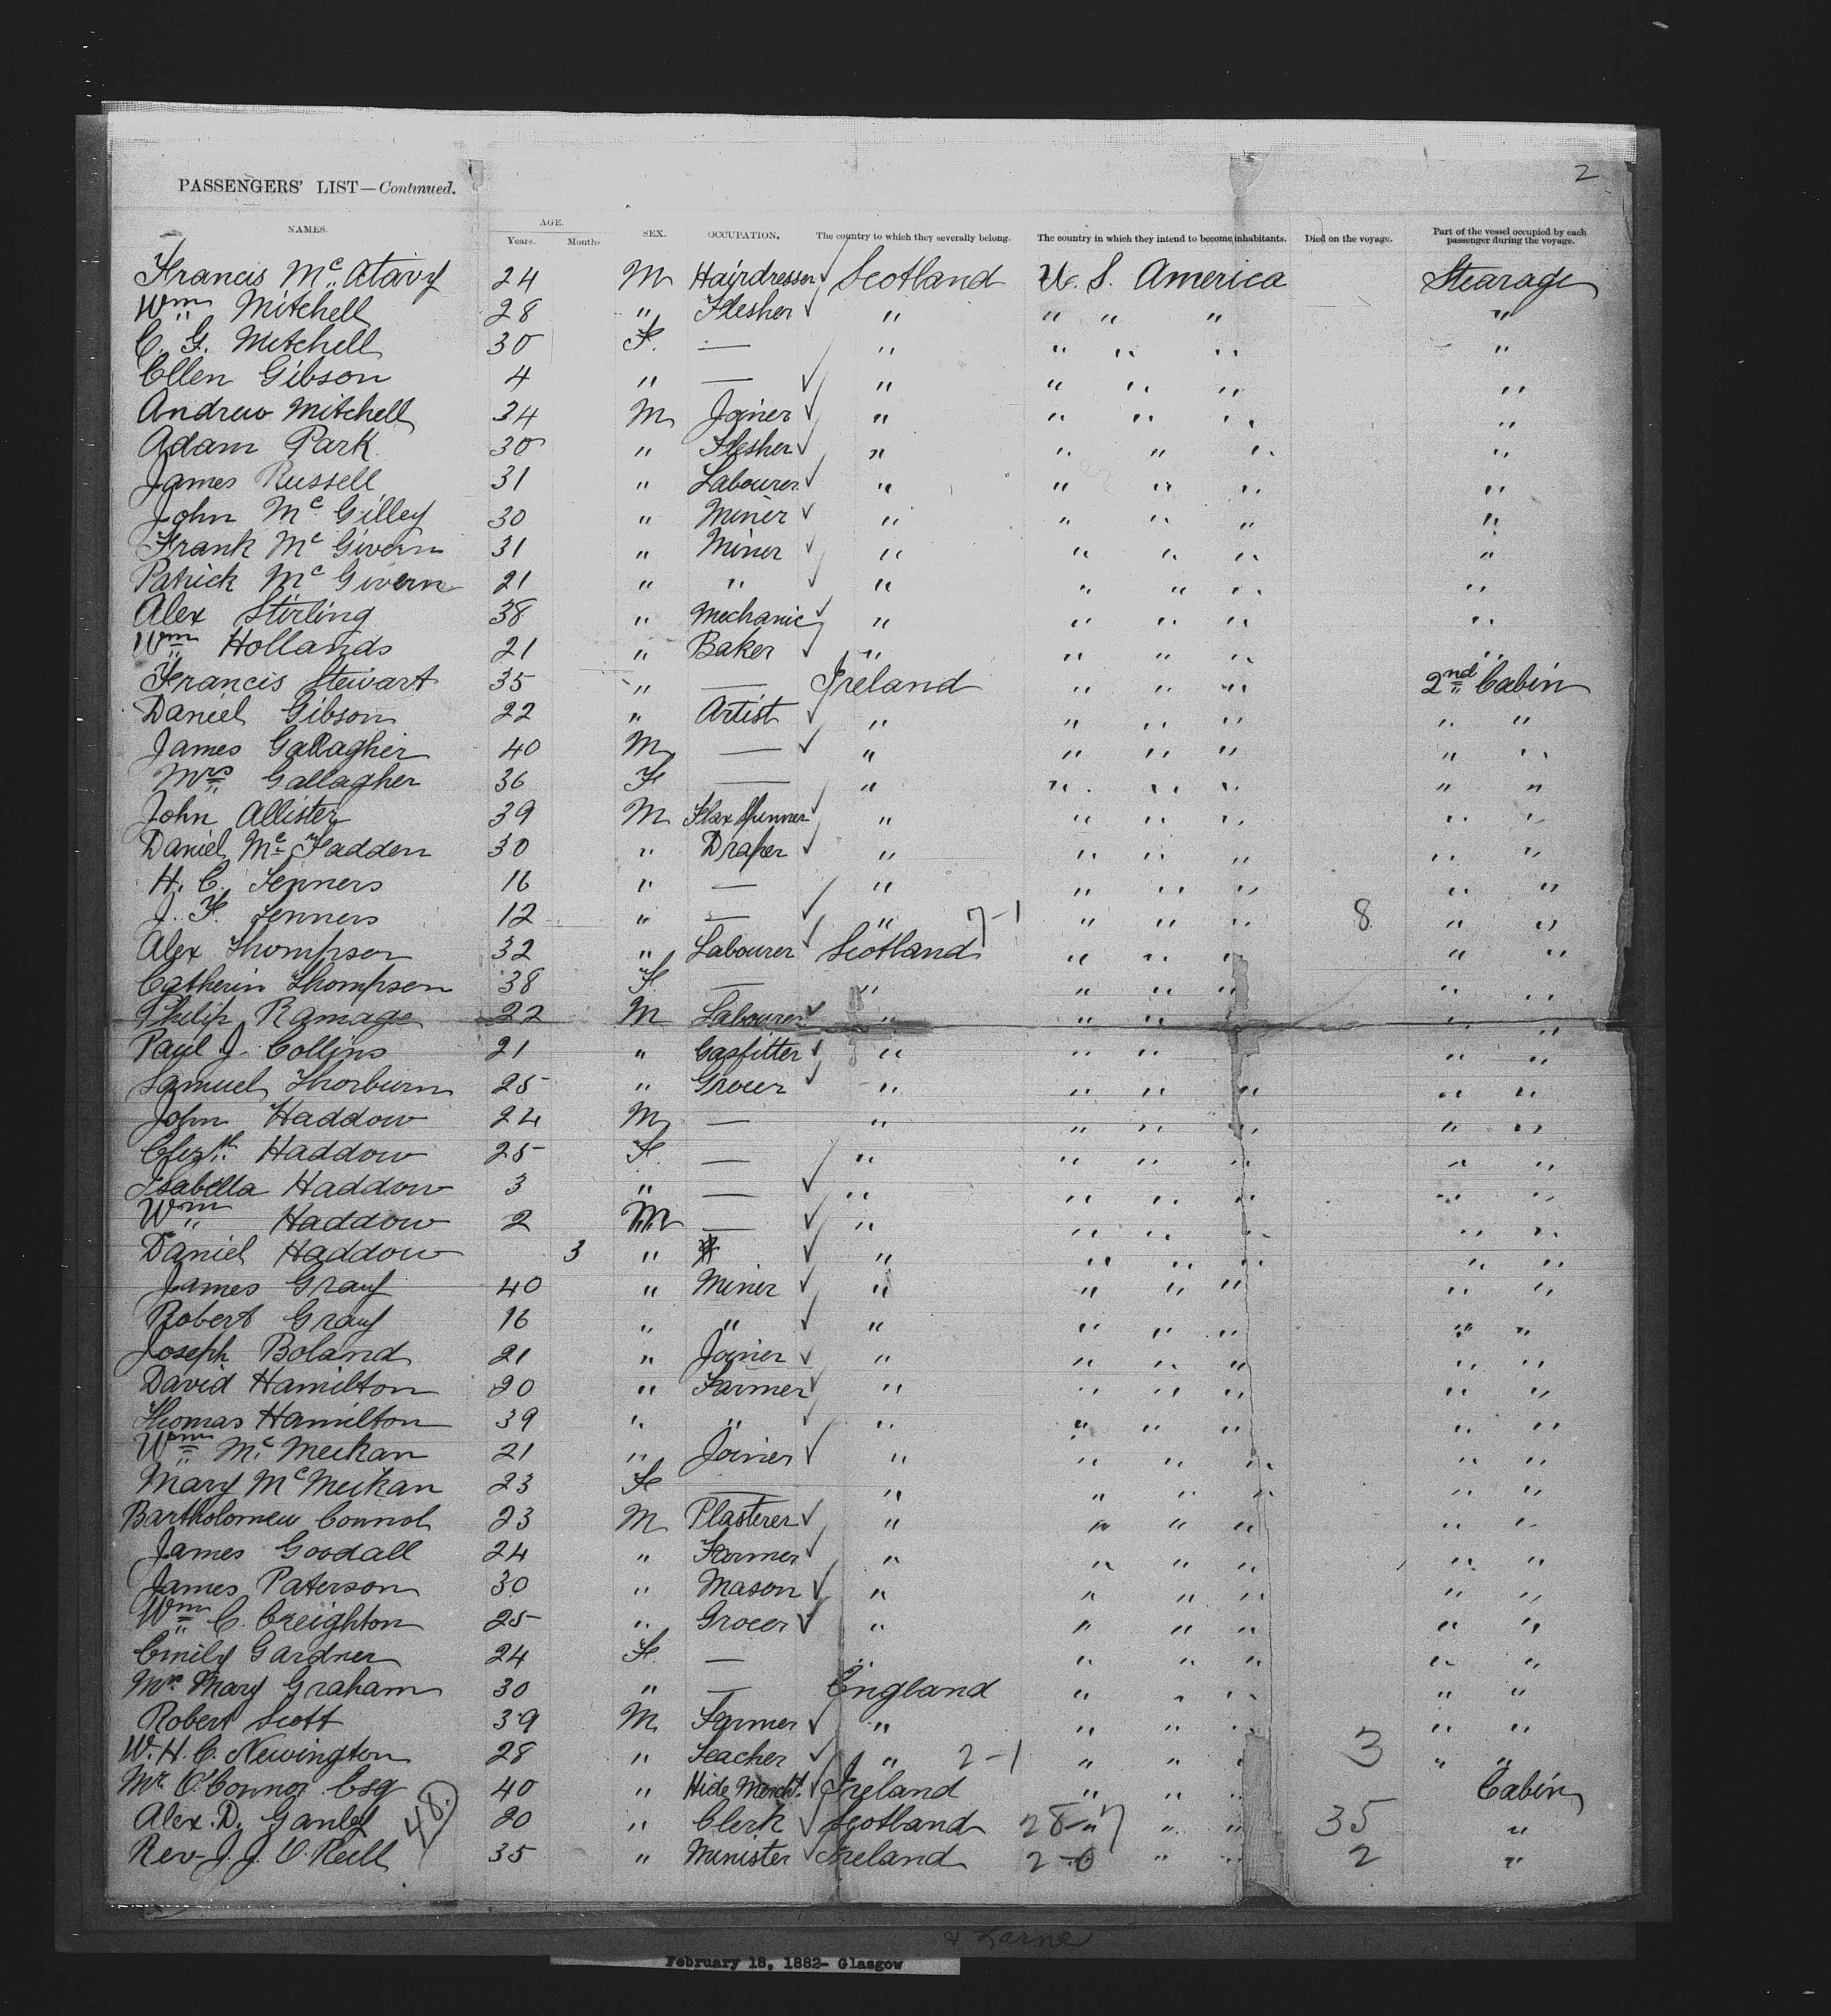 2
PASSENGERS' LIST—Continued.
NAMES. AGE. Years. Months SEX. OCCUPATION. The country to which they severally belong. The country in which they intend to become inhabitants. Died on the voyage. Part of the vessel occupied by each passenger during the voyage.
Francis Mc Atavy 24 M Hairdresser ✓ Scotland U. S. America Stearage
Wm Mitchell 28 " Flesher ✓ " " " " "
C. G. Mitchell 30 F. — " " " " "
Ellen Gibson 4 " — ✓ " " " " "
Andrew Mitchell 34 M Joiner ✓ " " " " "
Adam Park 30 " Flesher ✓ " " " " "
James Russell 31 " Labourer ✓ " " " " "
John Mc Gilley 30 " Miner ✓ " " " " "
Frank Mc Givern 31 " Miner ✓ " " " " "
Patrick Mc Givern 21 " " ✓ " " " " "
Alex Stirling 38 " Mechanic ✓ " " " " "
Wm Hollands 21 " Baker ✓ " " " " "
Francis Stewart 35 " — Ireland " " " 2nd Cabin
Daniel Gibson 22 " Artist ✓ " " " " " "
James Gallagher 40 M — ✓ " " " " " "
Mrs Gallagher 36 F — " " " " " "
John Allister 39 M Flax Spinner ✓ " " " " " "
Daniel Mc Fadden 30 " Draper ✓ " " " " " "
H. C. Fenners 16 " — ✓ " " " " " "
J. F. Fenners 12 " — ✓ " 7-1 " " " 8 " "
Alex Thompson 32 " Labourer ✓ Scotland " " " " "
Catherin Thompson 38 F. — " " " " " "
Philip Ramage 22 M Labourer ✓ " " " " "
Paul J. Collins 21 " Gasfitter ✓ " " " " "
Samuel Thorburn 25 " Grocer ✓ " " " " " "
John Haddow 24 M — " " " " " "
Elizth Haddow 25 F. — ✓ " " " " " "
Isabella Haddow 3 " — ✓ " " " " " "
Wm Haddow 2 M — ✓ " " " " " "
Daniel Haddow 3 " ✓ " " " " " "
James Gray 40 " Miner ✓ " " " " " "
Robert Gray 16 " " ✓ " " " " " "
Joseph Boland 21 " Joiner ✓ " " " " " "
David Hamilton 20 " Farmer ✓ " " " " " "
Thomas Hamilton 39 " " ✓ " " " " " "
Wm Mc Meekan 21 " Joiner ✓ " " " " " "
Mary Mc Meekan 23 F — " " " " " "
Bartholomew Connol 23 M Plasterer ✓ " " " " " "
James Goodall 24 " Farmer ✓ " " " " " "
James Paterson 30 " Mason ✓ " " " " " "
Wm C. Creighton 25 " Grocer ✓ " " " " " "
Emily Gardner 24 F. — " " " " " "
Mrs Mary Graham 30 " — England " " " " "
Robert Scott 39 M Farmer ✓ " " " " " "
W. H. C. Newington 28 " Teacher ✓ " 2-1 " " " 3 " "
Mr. O'Connor Esq 40 " Hide Mercht. ✓ Ireland " " " Cabin
Alex. D. Ganley 48. 20 " Clerk ✓ Scotland 28-7 " " " 35 "
Rev J. J. O'Neill 35 " Minister ✓ Ireland 2-0 " " 2 "
& Larne
February 18, 1882- Glasgow